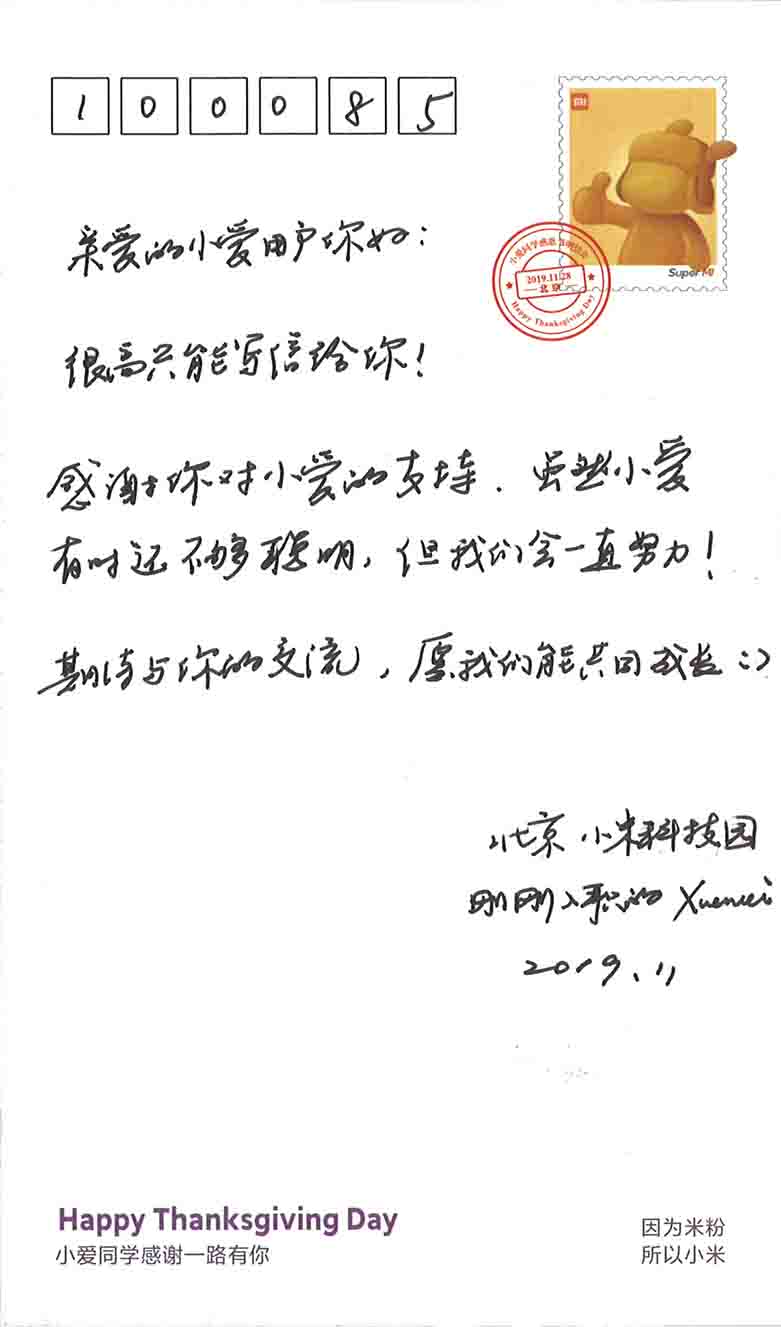 100085
MI
亲爱的小爱用户你好:
小爱同学感恩
2019.11.28
北京
Happy Thanksgiving Day
Super MI
很高兴能写信给你!
感谢你对小爱的支持.虽然小爱
有时还不够聪明,但我们会一直努力!
期待与你的交流,愿我们能共同成长:)
北京 小米科技园
刚刚入职的 Xuemei
2019.11
Happy Thanksgiving Day
小爱同学感谢一路有你
因为米粉
所以小米